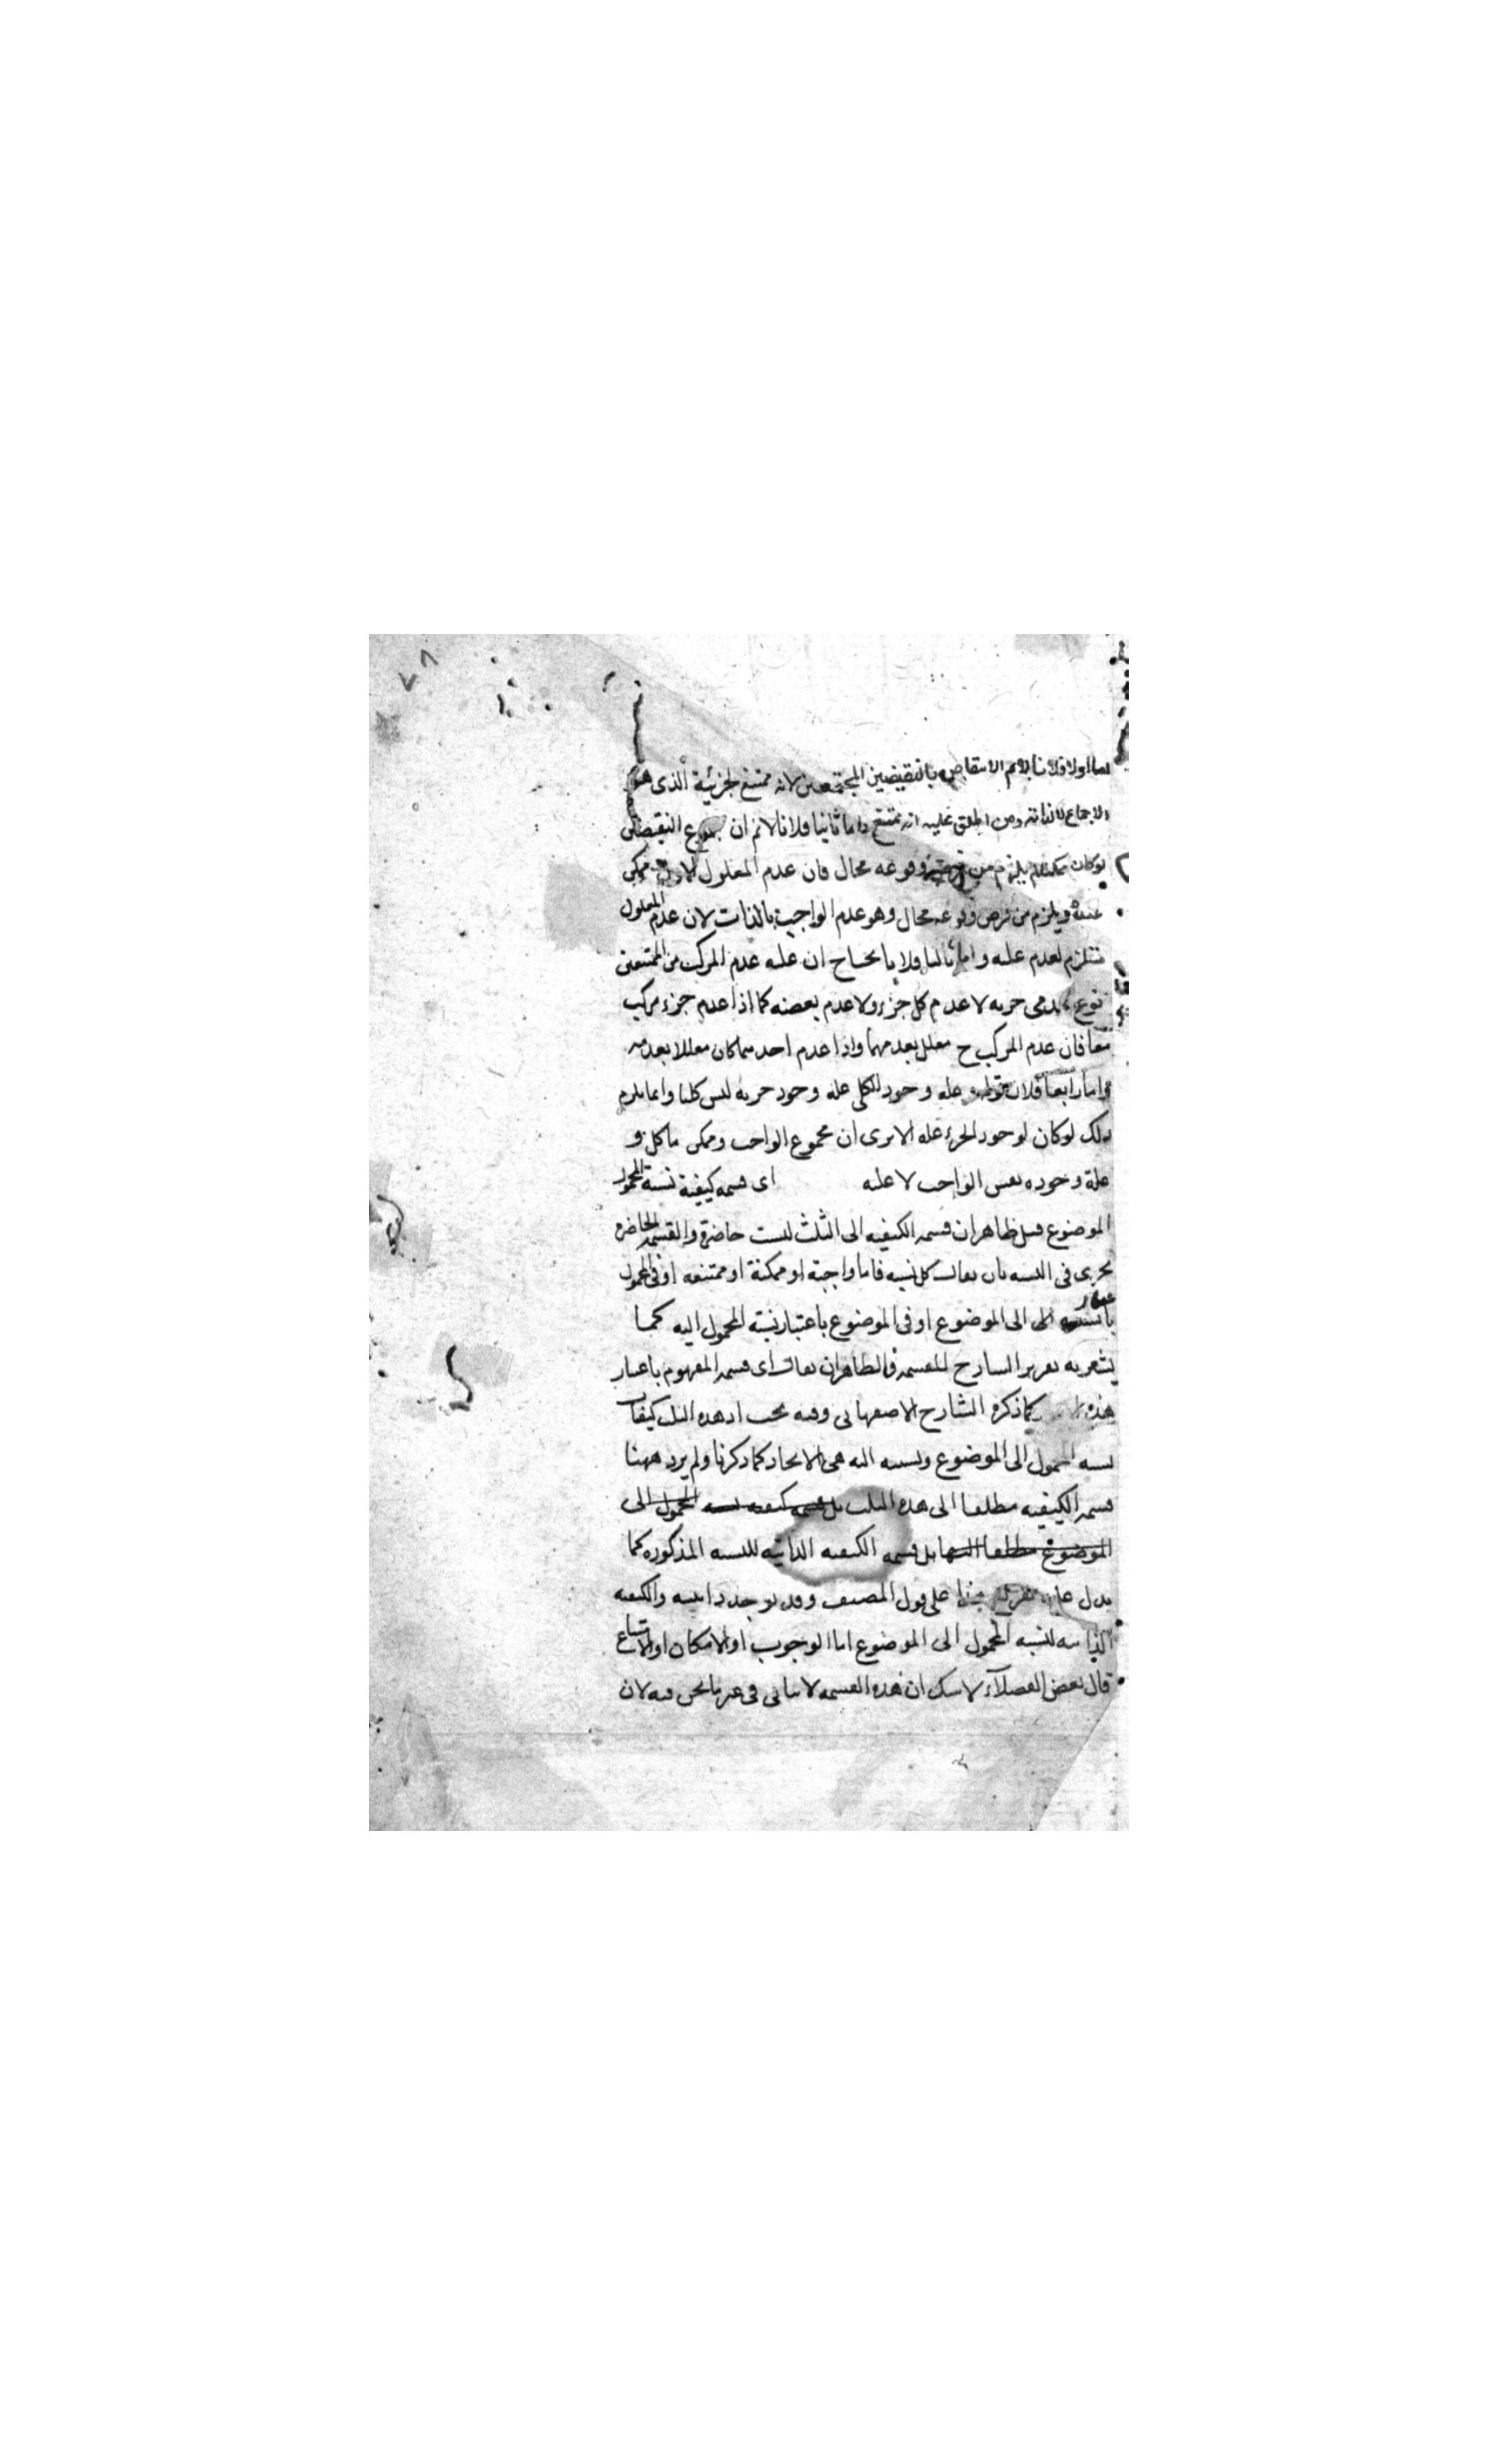 اما اولا فلانا لانم الانتقاض بالنقيضين المجتمعين لانه ممتنع لجزئية الذى هو
الاجماع لا لذاته ومن اطلق عليه انه ممتنع واما ثانيا فلانا لانم ان مجموع النقيضين
لو كان ممكنا لم يلزم من وقوعه محال فان عدم المعلول ممكن
عنده ويلزم من فرض وقوعه محال وهو عدم الواجب بالذات لان عدم المعلول
مستلزم لعدم علته واما ثالثا فلانا نحتاج ان علة عدم المركب من الممتنعين
عدم جزئه لا عدم كل جزء ولا عدم بعضه كما اذا عدم جزء مركب
معا فان عدم المركب ح معلل بعدمهما واذا عدم احدهما كان معللا بعدمه
واما رابعا فلان علة وجود الكلى علة وجود جزئه ليس كليا وانما يلزم
ذلك لو كان لوجود الجزء علة الا يرى ان مجموع الواجب وممكن ما كل و
علة وجوده نفس الواجب لا علته اى قسمة كيفية نسبة المحمول
الموضوع قيل ظاهر ان قسمة الكيفية الى الثلث ليست حاضرة والقسمة الحاضرة
تجرى فى النسبة بان يقال كل نسبة فاما واجبة او ممكنة او ممتنعة او فى المحمول
باعتبار الى الموضوع او فى الموضوع باعتبار نسبة المحمول اليه كما
يشعر به تقرير الشارح للقسمة فالظاهر ان يقال اى قسمة المفهوم باعتبار
هذه كما ذكره الشارح الاصفهانى وفيه بحث اذ هذه الثلث كيفيات
نسبة المحمول الى الموضوع ونسبته اليه هى الاتحاد كما ذكرنا ولم يرد ههنا
قسمة الكيفية مطلقا الى هذه الثلث بل قسمة كيفية نسبة المحمول الى
الموضوع مطلقا اليها بل قسمة الكيفية الذاتية للنسبة المذكورة كما
يدل عليه على قول المصنف وقد توجد ذاتية والكيفية
الذاتية لنسبة المحمول الى الموضوع اما الوجوب او الامكان او الامتناع
قال بعض الفضلاء لا شك ان هذه القسمة لا تتاتى فى غير ما نحن فيه لان